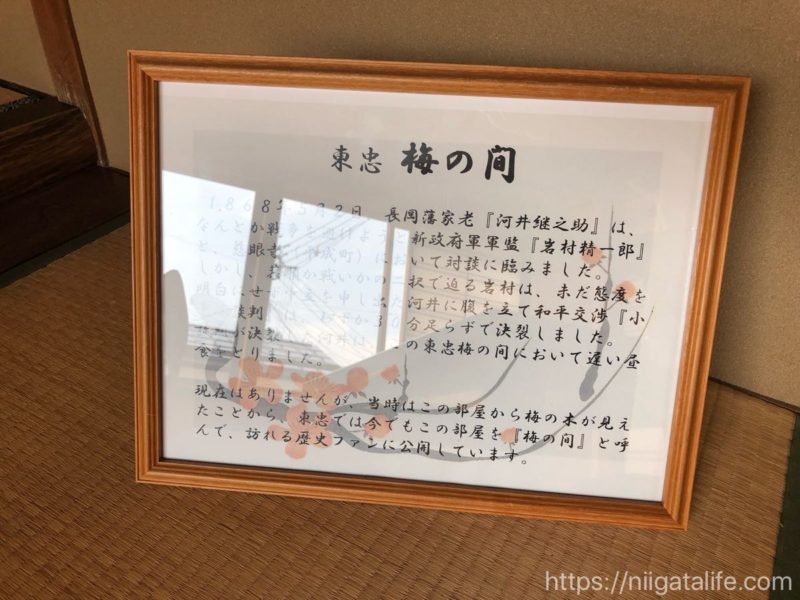 東忠 梅の間
1868年5月2日、長岡藩家老『河井継之助』は、
なんとか戦争を避けようと新政府軍軍監『岩村精一郎』
と、慈眼寺(平成町)において対談に臨みました。
しかし、恭順か戦いかの二択で迫る岩村は、未だ態度を
明白にせず中立を申し出た河井に腹を立て和平交渉『小
談判』は、わずか30分足らずで決裂しました。
が決裂した河井は、の東忠梅の間において遅い昼
食をとりました。
現在はありませんが、当時はこの部屋から梅の木が見え
たことから、東忠では今でもこの部屋を『梅の間』と呼
んで、訪れる歴史ファンに公開しています。
https://niigatalife.com